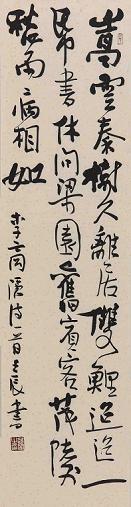 嵩雲秦樹久離居雙鯉迢迢一
帋書休問梁園舊賓客茂陵
秋雨病相如
李商隱詩一首壬辰書